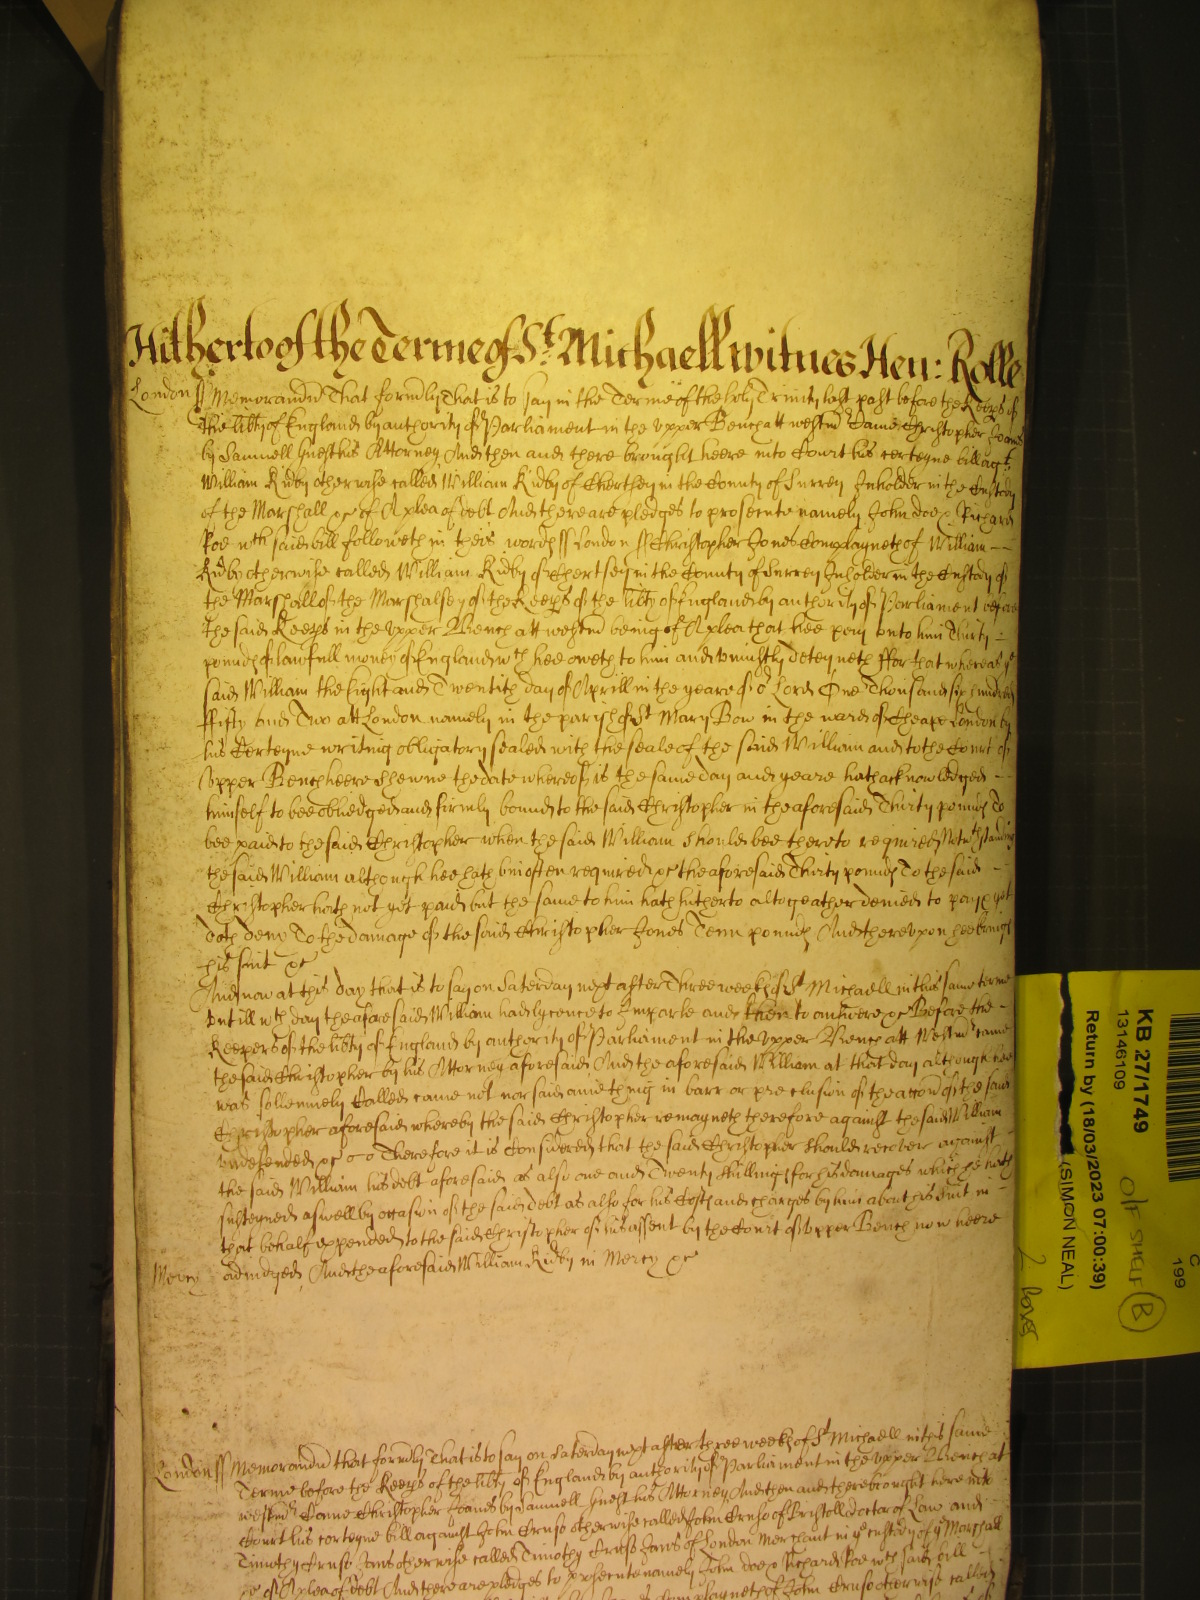 Hitherto of the Terme of St. Michaell witnes Hen: Rolle
London ss Memorand That formly That is to say in the Terme of the holy Trinity last past before the Keeps of
the libty of England by authority of Parliament in the Upper Bench att Westmr Came Christopher Joanes
by Samuell Guest his Attorney And then and there brought heere into Court his certeyne bill agt
William Ridby otherwise called William Ridby of Chertsey in the County of Surrey Inholder in the Custody
of the Marshall &c of A plea of debt And there are pledges to prosecute namely John doe & Richard
Roe wch said bill followeth in theis words ss London ss Christopher Jones Complayneth of William --
Ridby otherwise called William Ridby of Chertsey in the County of Surrey Inholder in the Custody of
the Marshall of the Marshalsey of the Keeps of the libty of England by authority of Parliament before
the said Keeps in the Upper Bench att Westmr being of A plea that hee pay unto him Thirty -
pounds of lawfull money of England wch hee oweth to him and uniustly deteyneth ffor that whereas ye
said William the Eight and Twentith day of Aprill in the yeare of or Lord One Thousand six hundred
ffifty and Two att London namely in the parish of St Mary Bow in the ward of Cheape London by
his Certeyne writing obligatory sealed with the seale of the said William and to the Court of
Upper Bench heere shewne the date whereof is the same day and yeare hath acknowledged --
himself to bee obliedged and firmly bound to the said Christopher in the aforesaid Thirty pounds To
bee paid to the said Christopher when the said William should bee thereto required Notwthstanding
the said William although hee hath bin often required &c the aforesaid Thirty pounds To the said -
Christopher hath not yet paid but the same to him hath hitherto altogeather denied to pay & yet
doth deny To the damage of the said Christopher Jones Tenn pounds And thereupon hee brings
his suit &c
And now at this day that is to say on Saturday next after Three weekes of St Michaell in this same terme
untill wch day the aforesaid William had lycence to Emparle and then to answere &c Before the -
Keepers of the libty of England by authority of Parliament in the Upper Bench att Westmr came
the said Christopher by his Attorney aforesaid And the aforesaid William at that day although hee
was sollemnely Called came not nor said anie thing in barr or preclusion of the accon of the said
Christopher aforesaid whereby the said Christopher remayneth therefore against the said William
undefended &c Therefore it is Considered that the said Christopher should recover against -
the said William his debt aforesaid as also one and Twenty shillings for his damages which he hath
susteyned aswell by occasion of the said debt as also for his Costs and charges by him about his suit in -
that behalf expended to the said Christopher of his assent by the Court of Upper Bench now heere
Mercy adiudged And the aforesaid William Ridby in Mercy &c
London ss Memorand that formly That is to say on Saturday next after three weeks of St Michaell in this same
Terme before the Keeps of the libty of England by authority of Parliament in the Upper Bench at
westmr Came Christopher Joanes by Samuell Guest his Attorney And then and there brought here into
Court his certeyne bill against John otherwise called John of Bristoll doctor of Law and
Timothy otherwise called Timothy of London Merchant in ye custody of ye Marshall
&c of A plea of debt And there are pledges to prosecute namely John doe & Richard Roe wch said bill
Complayneth of John otherwise called
KB 27/1749
13146109
Return by (18/03/2023 07:00:39)
(SIMON NEAL)
C
199
O/F SHELF
B
2 boxes